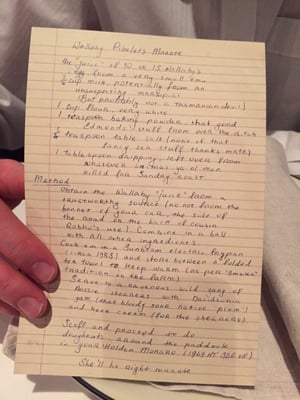 Wallaby Pikelets Maaate
The "juice" of 10 or 15 Wallabys
1 egg from a very small emu
½ cup milk, potentially from an
unsuspecting marsupial
(But probably not a tasmanian devil)
1 cup flour, very white
1 teaspoon baking powder, that good
Edmonds stuff from over the ditch
¼ teaspoon table salt (none of that
fancy sea stuff thanks mate)
1 tablespoon dripping, left over from
whatever animal ya ol man
killed for Sunday roast
Method
Obtain the Wallaby "juice" from a
trustworthy source (no not from the
bonnet of your car, the side of
the road or the back of cousin
Robbo's ute) Combine in a bowl
with all other ingredients.
Cook em in a Sunbeam electric fraypan
(circa 1963) and store between a folded
tea towel to keep warm (as per "Smoko"
tradition on the farm)
Serve to a ravenous wild gang of
Aussie shearers with Davidsonia
jam (that bloody sour native plum)
and horse cream (for the shearers)
Scoff and proceed to do
doughnuts around the paddock
in your Holden Monaro (1969 HT 350 of)
She'll be right maaate